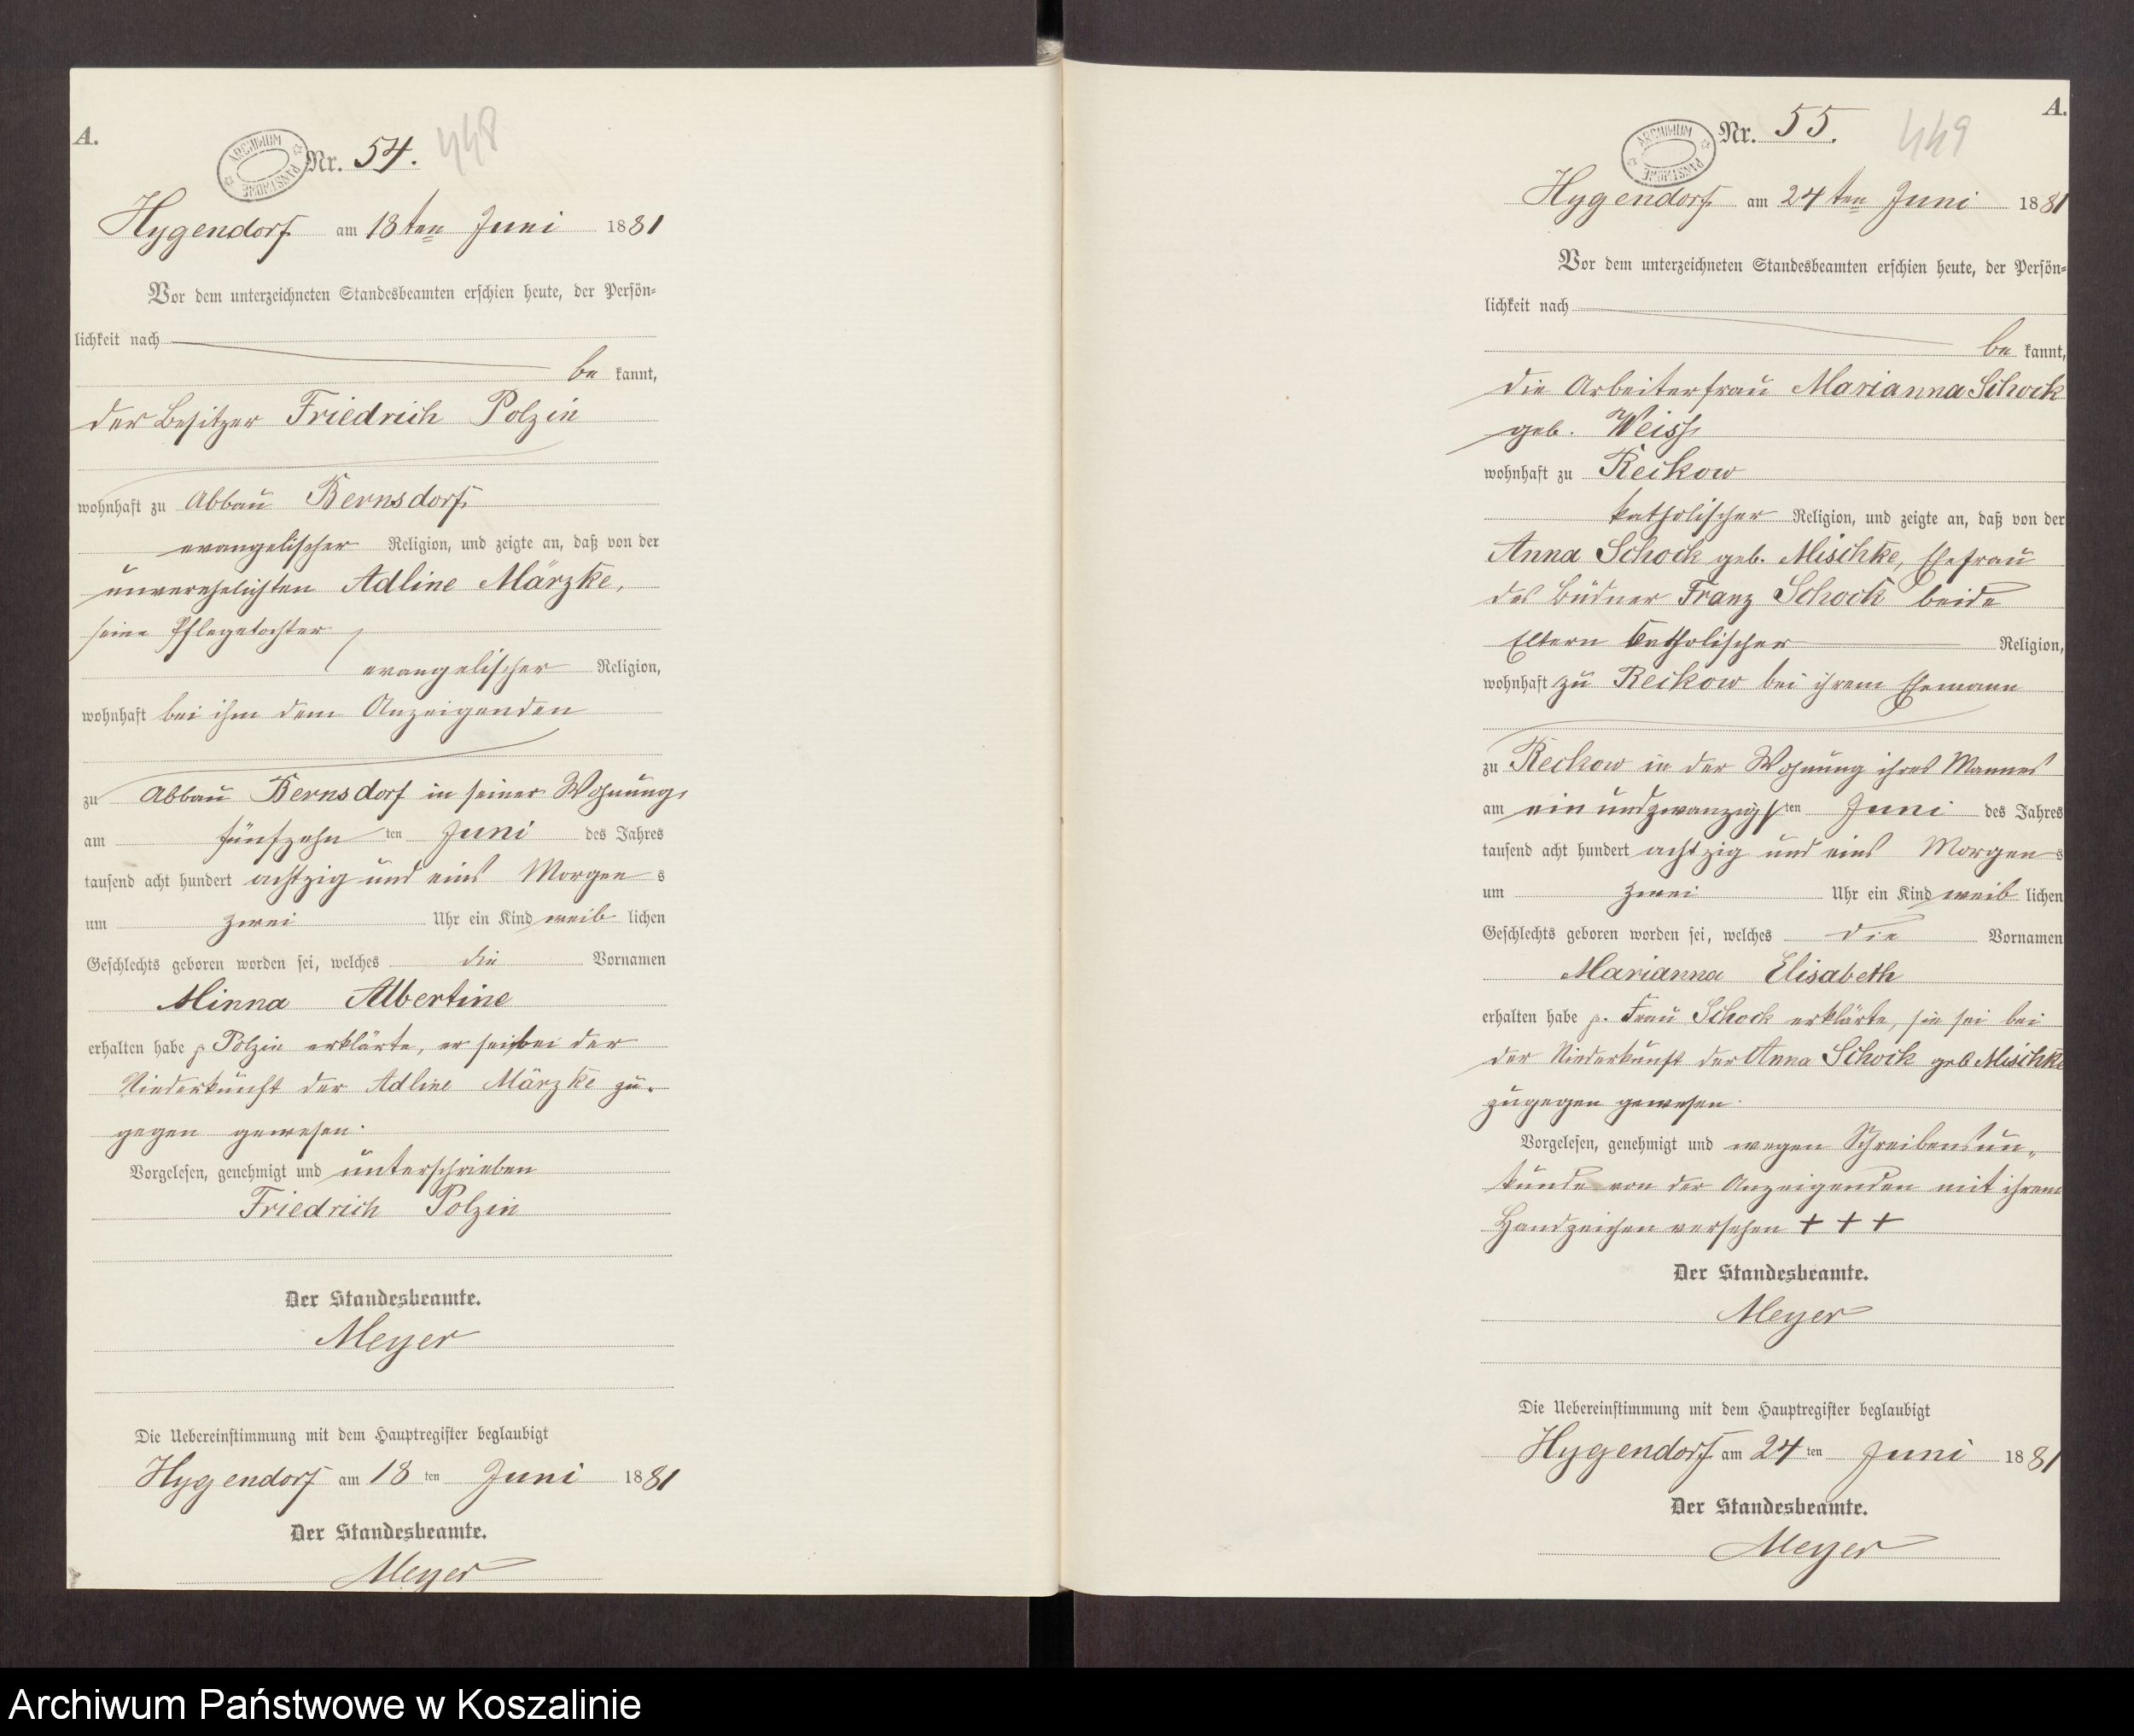 A.
ARCHIWUM PAŃSTWOWE
Nr. 54. 448
Hygendorf am 18ten Juni 1881
Vor dem unterzeichneten Standesbeamten erschien heute, der Persön-
lichkeit nach
be kannt,
der Besitzer Friedrich Polzin
wohnhaft zu Abbau Bernsdorf
evangelischer Religion, und zeigte an, daß von der
unverehelichten Adline Märzke,
seine Pflegetochter
evangelischer Religion,
wohnhaft bei ihm dem Anzeigenden
zu Abbau Bernsdorf in seiner Wohnung,
am fünfzehn ten Juni des Jahres
tausend acht hundert achtzig und eins Morgen s
um zwei Uhr ein Kind weib lichen
Geschlechts geboren worden sei, welches die Vornamen
Minna Albertine
erhalten habe p Polzin erklärte, er sei bei der
Niederkunft der Adline Märzke zu-
gegen gewesen.
Vorgelesen, genehmigt und unterschrieben
Friedrich Polzin
Der Standesbeamte.
Meyer
Die Uebereinstimmung mit dem Hauptregister beglaubigt
Hygendorf am 18 ten Juni 1881
Der Standesbeamte.
Meyer
A.
ARCHIWUM PAŃSTWOWE
Nr. 55. 449
Hygendorf am 24ten Juni 1881
Vor dem unterzeichneten Standesbeamten erschien heute, der Persön-
lichkeit nach
be kannt,
die Arbeiterfrau Marianna Schock
geb. Weiss
wohnhaft zu Reckow
katholischer Religion, und zeigte an, daß von der
Anna Schock geb. Mischke, Ehefrau
des Büdner Franz Schock beide
Eltern katholischer Religion,
wohnhaft zu Reckow bei ihrem Ehemann
zu Reckow in der Wohnung ihres Mannes
am ein und zwanzigs ten Juni des Jahres
tausend acht hundert achtzig und eins Morgen s
um zwei Uhr ein Kind weib lichen
Geschlechts geboren worden sei, welches die Vornamen
Marianna Elisabeth
erhalten habe p. Frau Schock erklärte, sie sei bei
der Niederkunft der Anna Schock geb Mischke
zugegen gewesen.
Vorgelesen, genehmigt und wegen Schreibensun-
kunde von der Anzeigenden mit ihrem
Handzeichen versehen + + +
Der Standesbeamte.
Meyer
Die Uebereinstimmung mit dem Hauptregister beglaubigt
Hygendorf am 24 ten Juni 1881
Der Standesbeamte.
Meyer
Archiwum Państwowe w Koszalinie